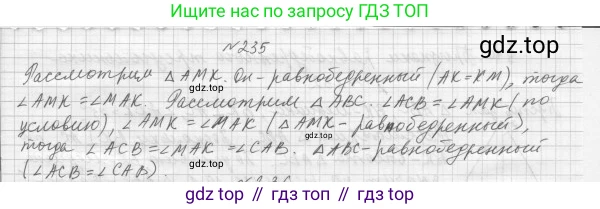 Ищите нас по запросу ГДЗ ТОП
№235
Рассмотрим △AMK. Он- равнобедренный (AK=KM), тогда
∠AMK=∠MAK. Рассмотрим △ABC. ∠ACB=∠AMK (по
условию), ∠AMK=∠MAK (△AMK- равнобедренный),
тогда ∠ACB=∠MAK=∠CAB. △ABC- равнобедренный
(∠ACB=∠CAB).
gdz.top
gdz.top
gdz.top
gdz.top // gdz.top // gdz.top